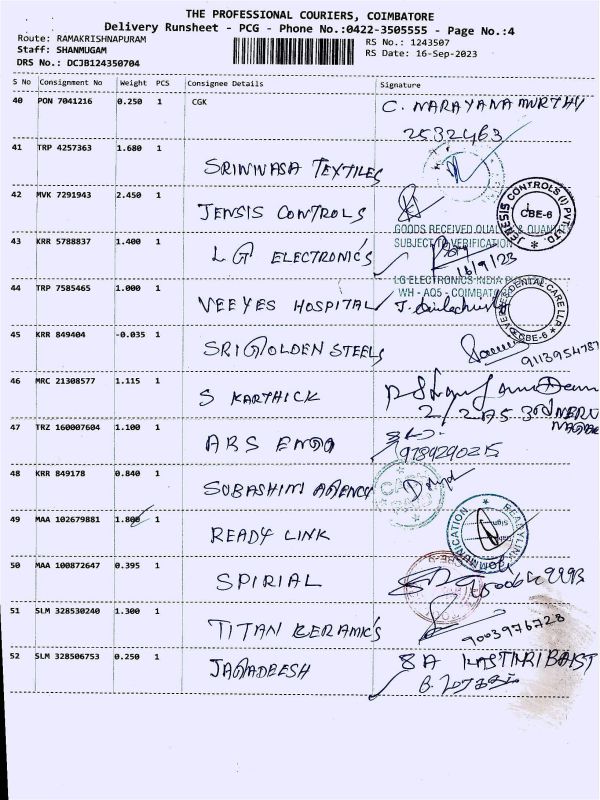 THE PROFESSIONAL COURIERS, COIMBATORE
Delivery Runsheet - PCG - Phone No.:0422-3505555 - Page No.:4
Route: RAMAKRISHNAPURAM
RS No.: 1243507
Staff: SHANMUGAM
RS Date: 16-Sep-2023
DRS No.: DCJB124350704
S No Consignment No Weight PCS Consignee Details Signature
40 PON 7041216 0.250 1 CGK C. NARAYANA MURTHY
2532463
41 TRP 4257363 1.680 1
SRINIVASA TEXTILES
42 MVK 7291943 2.450 1
JENSIS CONTROLS
JENESIS CONTROLS (I) PVT. LTD.
CBE-6
GOODS RECEIVED QUALITY & QUANTITY
SUBJECT TO VERIFICATION
43 KRR 5788837 1.400 1
LG ELECTRONIC'S
16/9/23
LG ELECTRONICS INDIA
WH - AQ5 - COIMBATORE
44 TRP 7585465 1.000 1
VEEYES HOSPITAL
DENTAL CARE LLP
CBE-6
45 KRR 849404 -0.035 1
SRI GOLDEN STEELS
9113954787
46 MRC 21308577 1.115 1
S KARTHICK
47 TRZ 160007604 1.100 1
ABS ENGG
9789290215
48 KRR 849178 0.840 1
SUBASHINI AGENCY
49 MAA 102679881 1.800 1
READY LINK
READYLINK COMMUNICATION
50 MAA 100872647 0.395 1
SPIRIAL
51 SLM 328530240 1.300 1
TITAN CERAMIC'S
9003976728
52 SLM 328506753 0.250 1
JAGADEESH
8 A KASTHRIBAIST